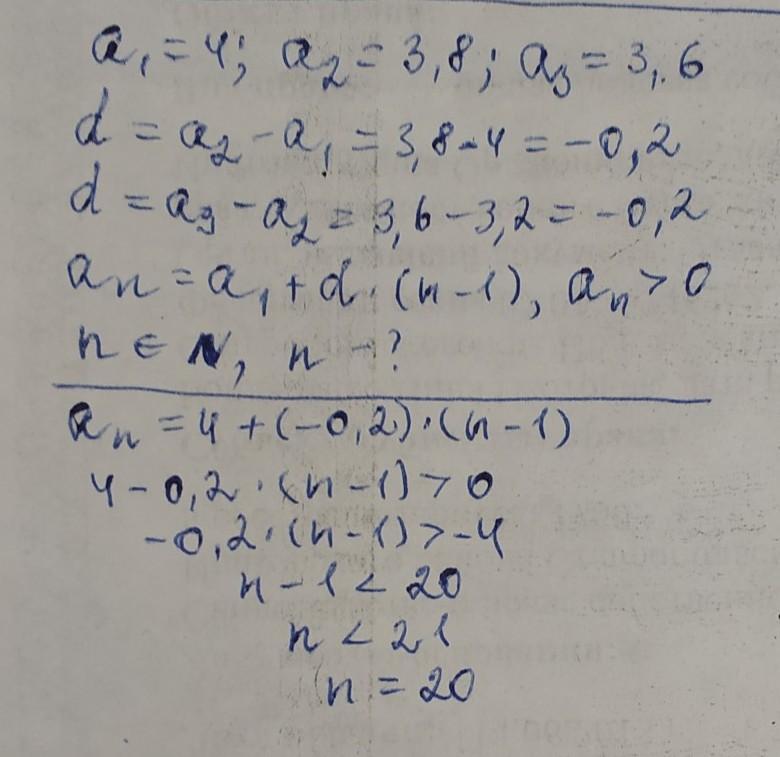 a₁ = 4; a₂ = 3,8; a₃ = 3,6
d = a₂ - a₁ = 3,8 - 4 = -0,2
d = a₃ - a₂ = 3,6 - 3,2 = -0,2
aₙ = a₁ + d · (n-1), aₙ > 0
n ∈ N, n - ?
aₙ = 4 + (-0,2) · (n-1)
4 - 0,2 · (n-1) > 0
-0,2 · (n-1) > -4
n - 1 < 20
n < 21
n = 20